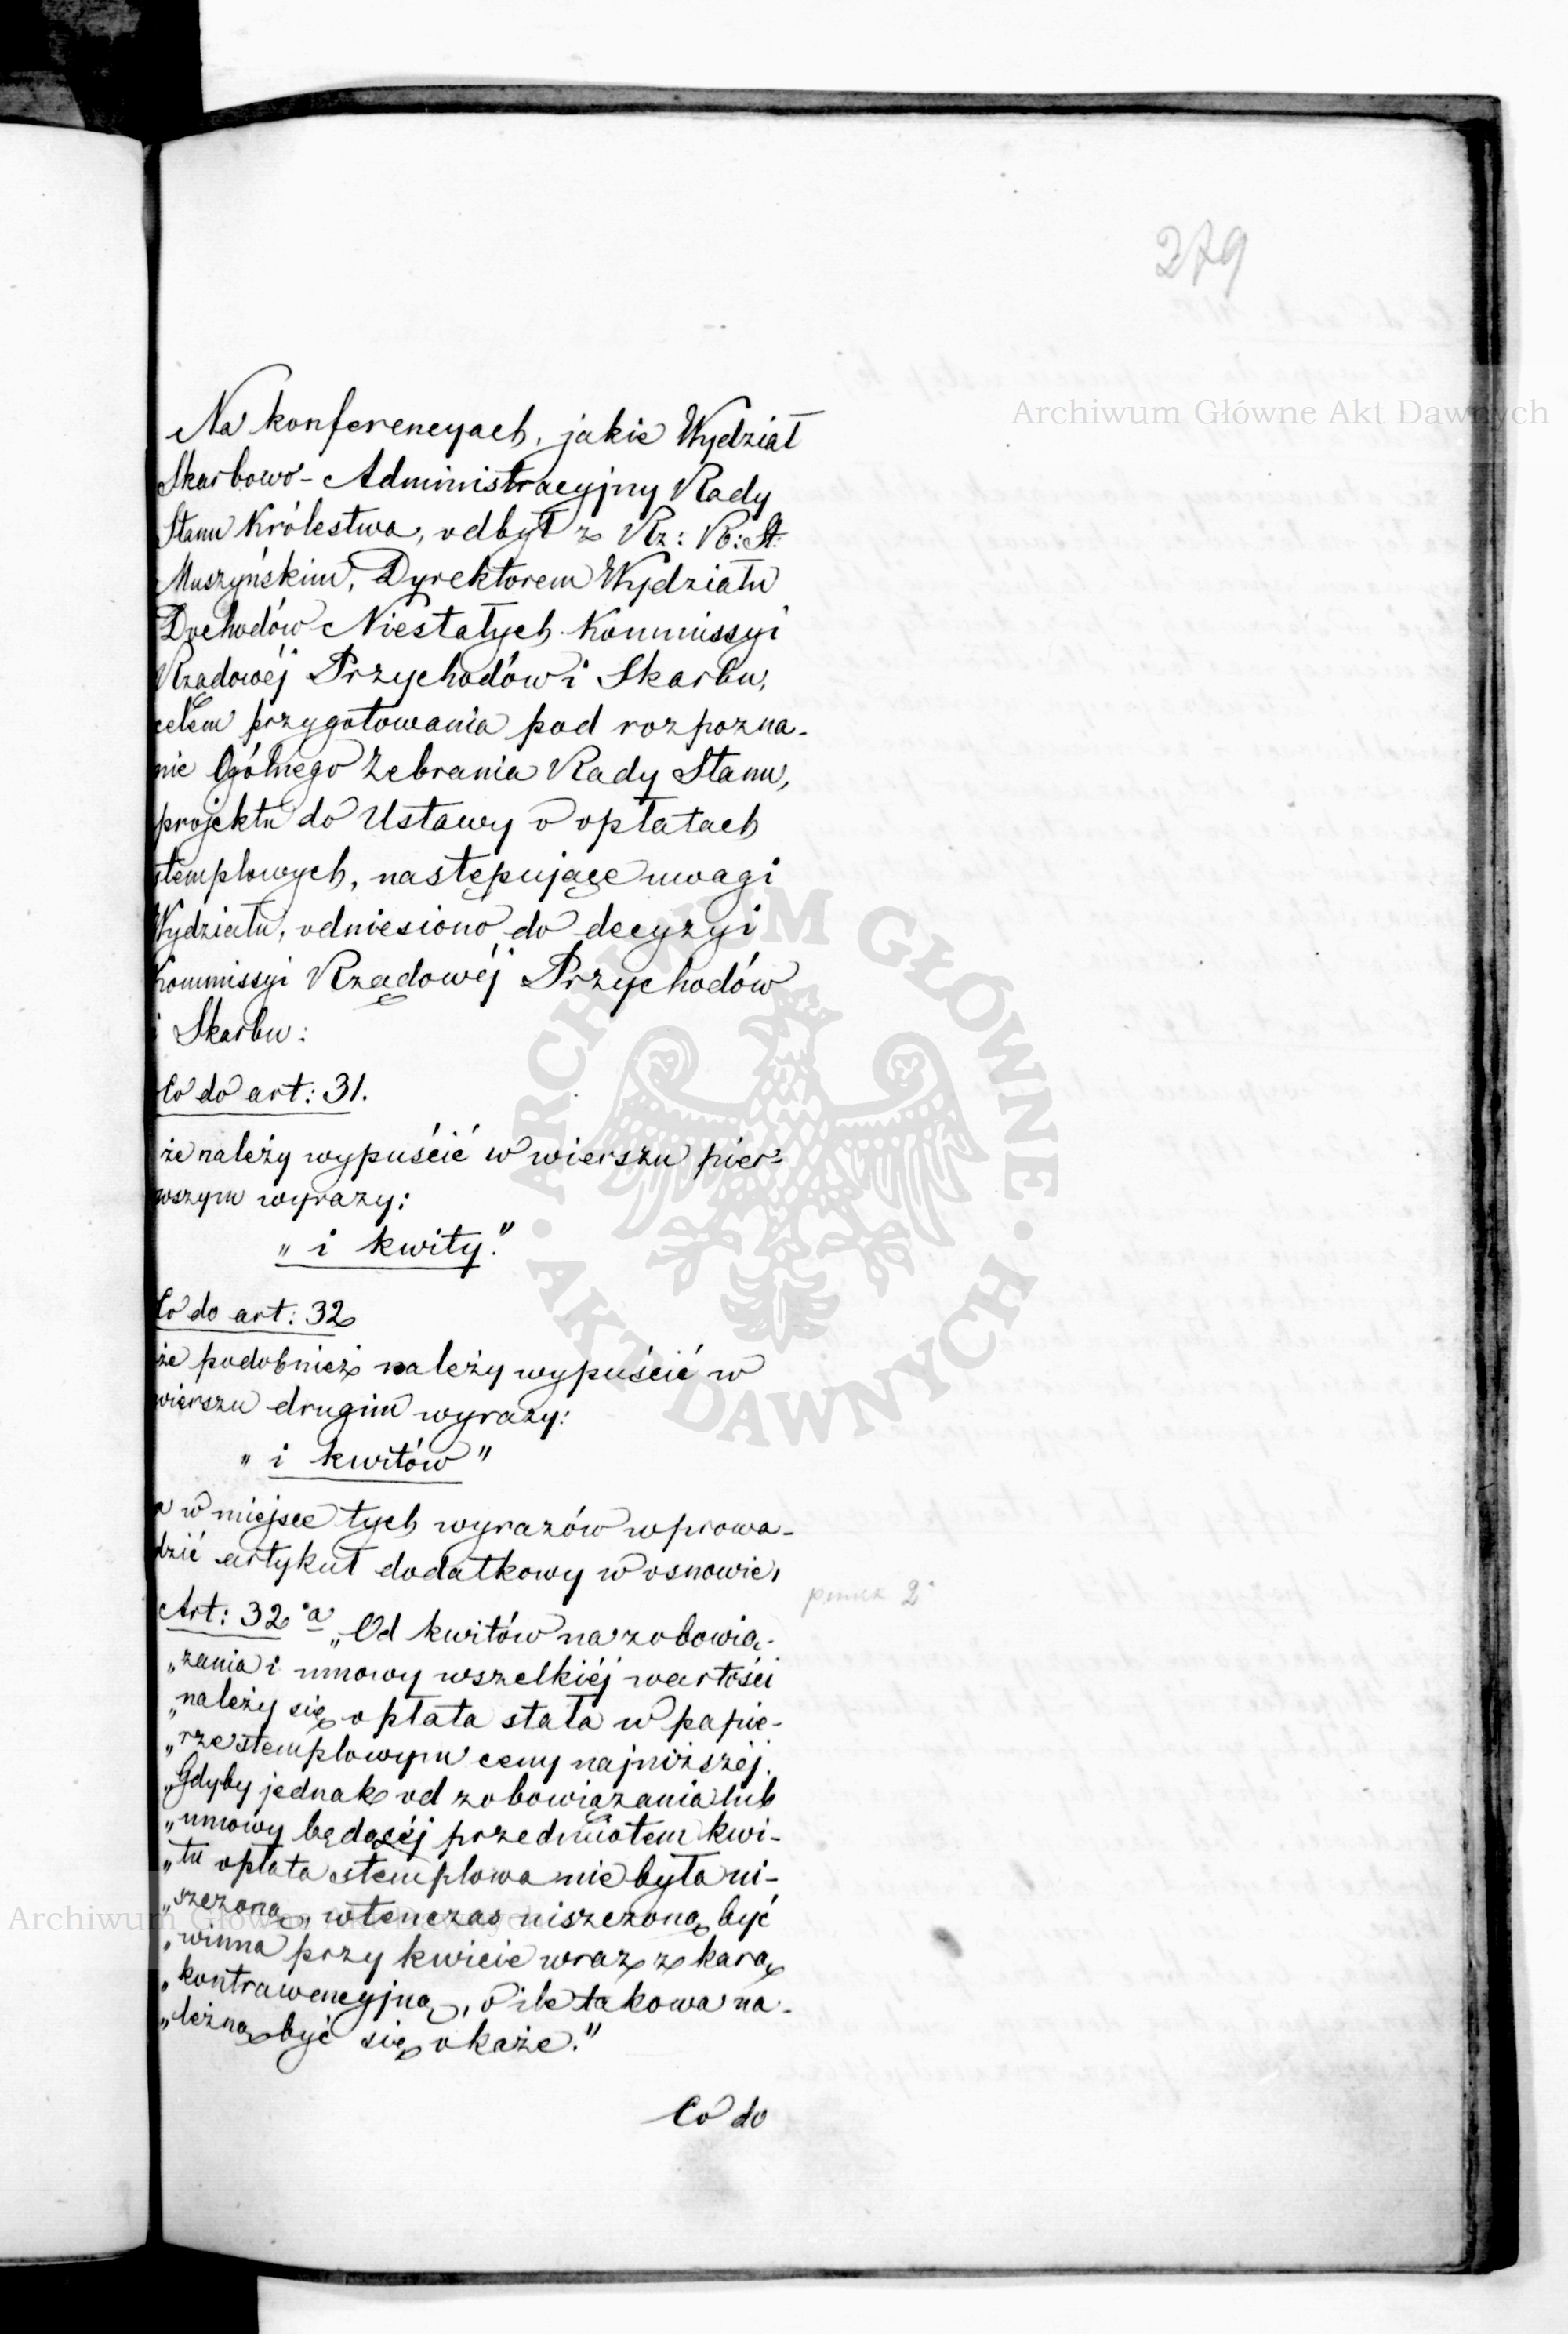 279
Na konferencyach, jakie Wydział
Skarbowo-Administracyjny Rady
Stanu Królestwa, odbył z Rz: R: St:
Muszyńskim, Dyrektorem Wydziału
Dochodów Niestałych Kommissyi
Rządowéj Przychodów i Skarbu,
celem przygotowania pod rozpozna-
nie Ogólnego Zebrania Rady Stanu,
projektu do Ustawy o opłatach
stemplowych, następujące uwagi
Wydziału, odniesiono do decyzyi
Kommissyi Rządowéj Przychodów
i Skarbu:
Co do art: 31.
że należy wypuścić w wierszu pier-
wszym wyrazy:
„i kwity."
Co do art: 32
że podobnież należy wypuścić w
wierszu drugim wyrazy:
„i kwitów"
a w miejsce tych wyrazów wprowa-
dzić artykuł dodatkowy w osnowie,
Art: 32 a „Od kwitów na zobowią-
„zania i umowy wszelkiéj wartości
„należy się opłata stała w papie-
„rze stemplowym ceny najniższéj.
„Gdyby jednak od zobowiązania lub
„umowy będącéj przedmiotem kwi-
„tu opłata stemplowa nie była ui-
„szczoną, wtenczas uiszczoną być
„winna przy kwicie wraz z karą
„kontrawencyjną, o ile takowa na-
„leżną być się okaże."
Co do
2
Archiwum Główne Akt Dawnych
ARCHIWUM GŁÓWNE
AKT DAWNYCH
Archiwum Główne Akt Dawnych